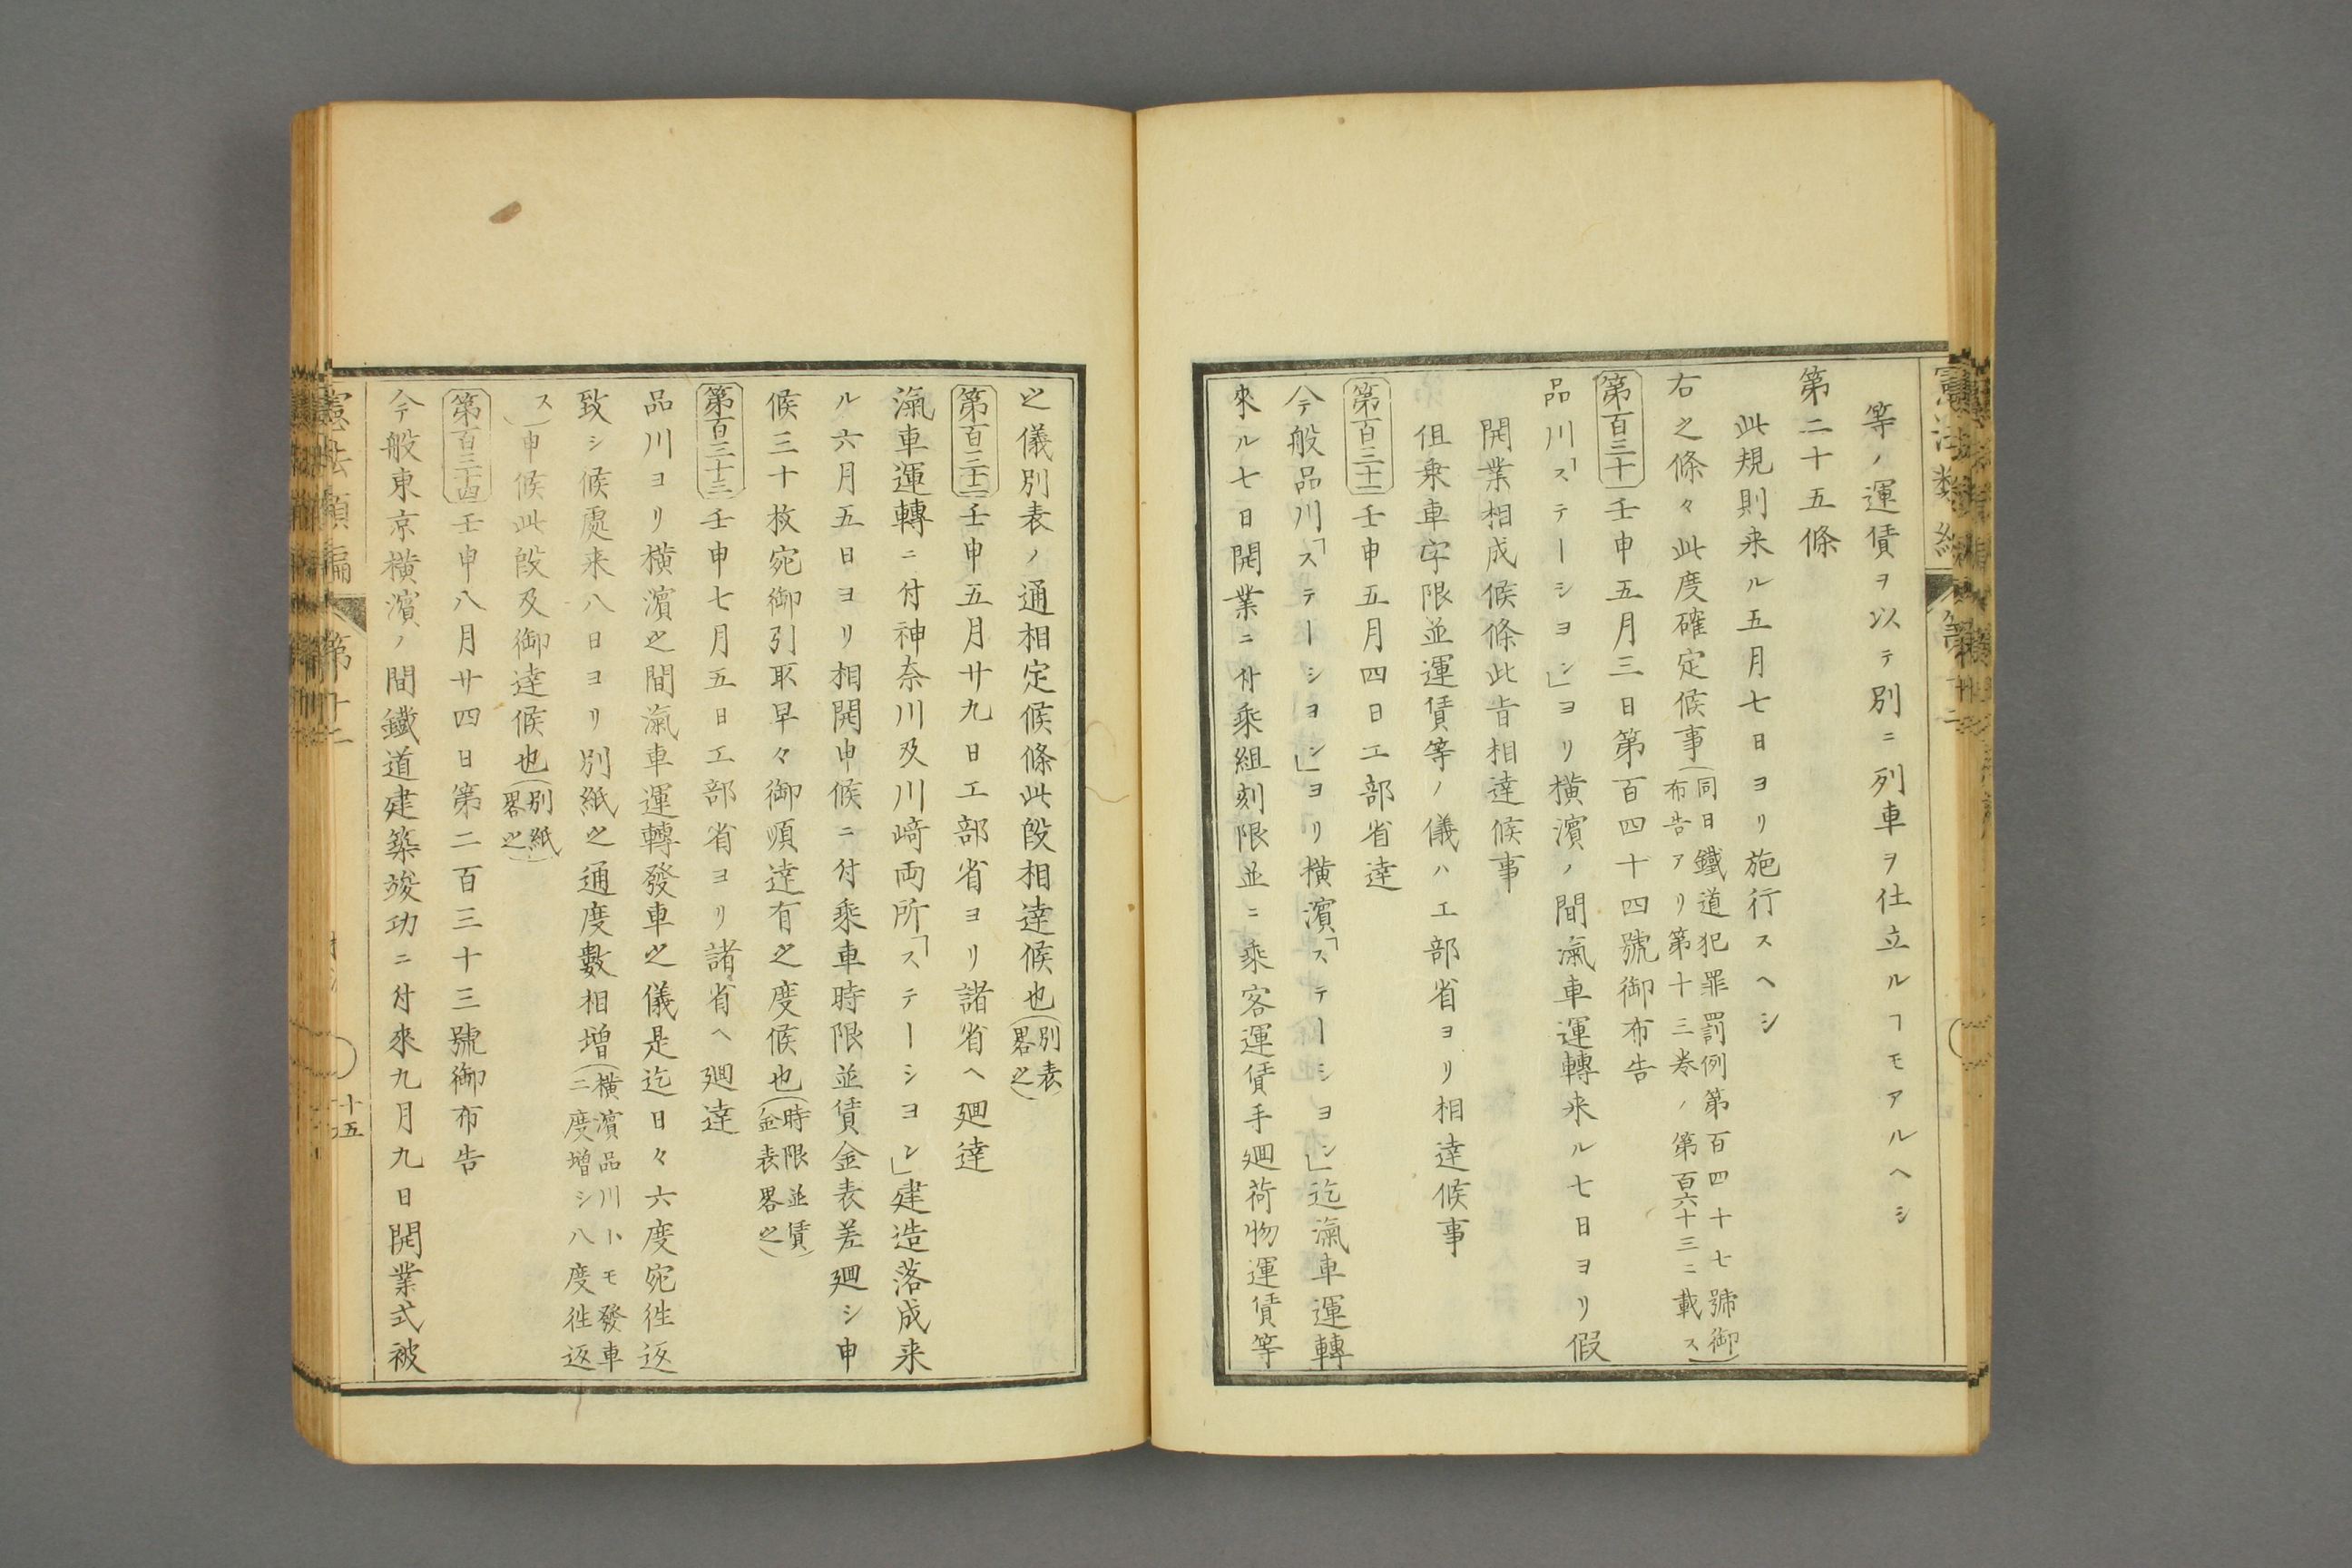 等ノ運賃ヲ以テ別ニ列車ヲ仕立ルヿモアルヘシ
第二十五條
此規則来ル五月七日ヨリ施行スヘシ
右之條々此度確定候事(同日鐵道犯罪罰例第百四十七號御
布告アリ第十三巻ノ第百六十三ニ載ス)
第百三十 壬申五月三日第百四十四號御布告
品川「ステーシヨン」ヨリ横濱ノ間滊車運轉来ル七日ヨリ假
開業相成候條此旨相達候事
但乗車字限並運賃等ノ儀ハ工部省ヨリ相達候事
第百三十一 壬申五月四日工部省達
今般品川「ステーシヨン」ヨリ横濱「ステーシヨン」迄滊車運轉
來ル七日開業ニ付乘組刻限並ニ乘客運賃手廻荷物運賃等
之儀別表ノ通相定候條此段相達候也(別表
畧之)
第百三十二 壬申五月廿九日工部省ヨリ諸省ヘ廻達
滊車運轉ニ付神奈川及川﨑両所「ステーシヨン」建造落成来
ル六月五日ヨリ相開申候ニ付乘車時限並賃金表差廻シ申
候三十枚宛御引取早々御順達有之度候也(時限並賃
金表畧之)
第百三十三 壬申七月五日工部省ヨリ諸省ヘ廻達
品川ヨリ横濱之間滊車運轉發車之儀是迄日々六度宛徃返
致シ候處来八日ヨリ別紙之通度數相增(横濱品川トモ發車
二度增シ八度徃返
ス)申候此段及御達候也(別紙
畧之)
第百三十四 壬申八月廿四日第二百三十三號御布告
今般東京横濱ノ間鐵道建築竣功ニ付來九月九日開業式被
憲法類編 第十二
十五